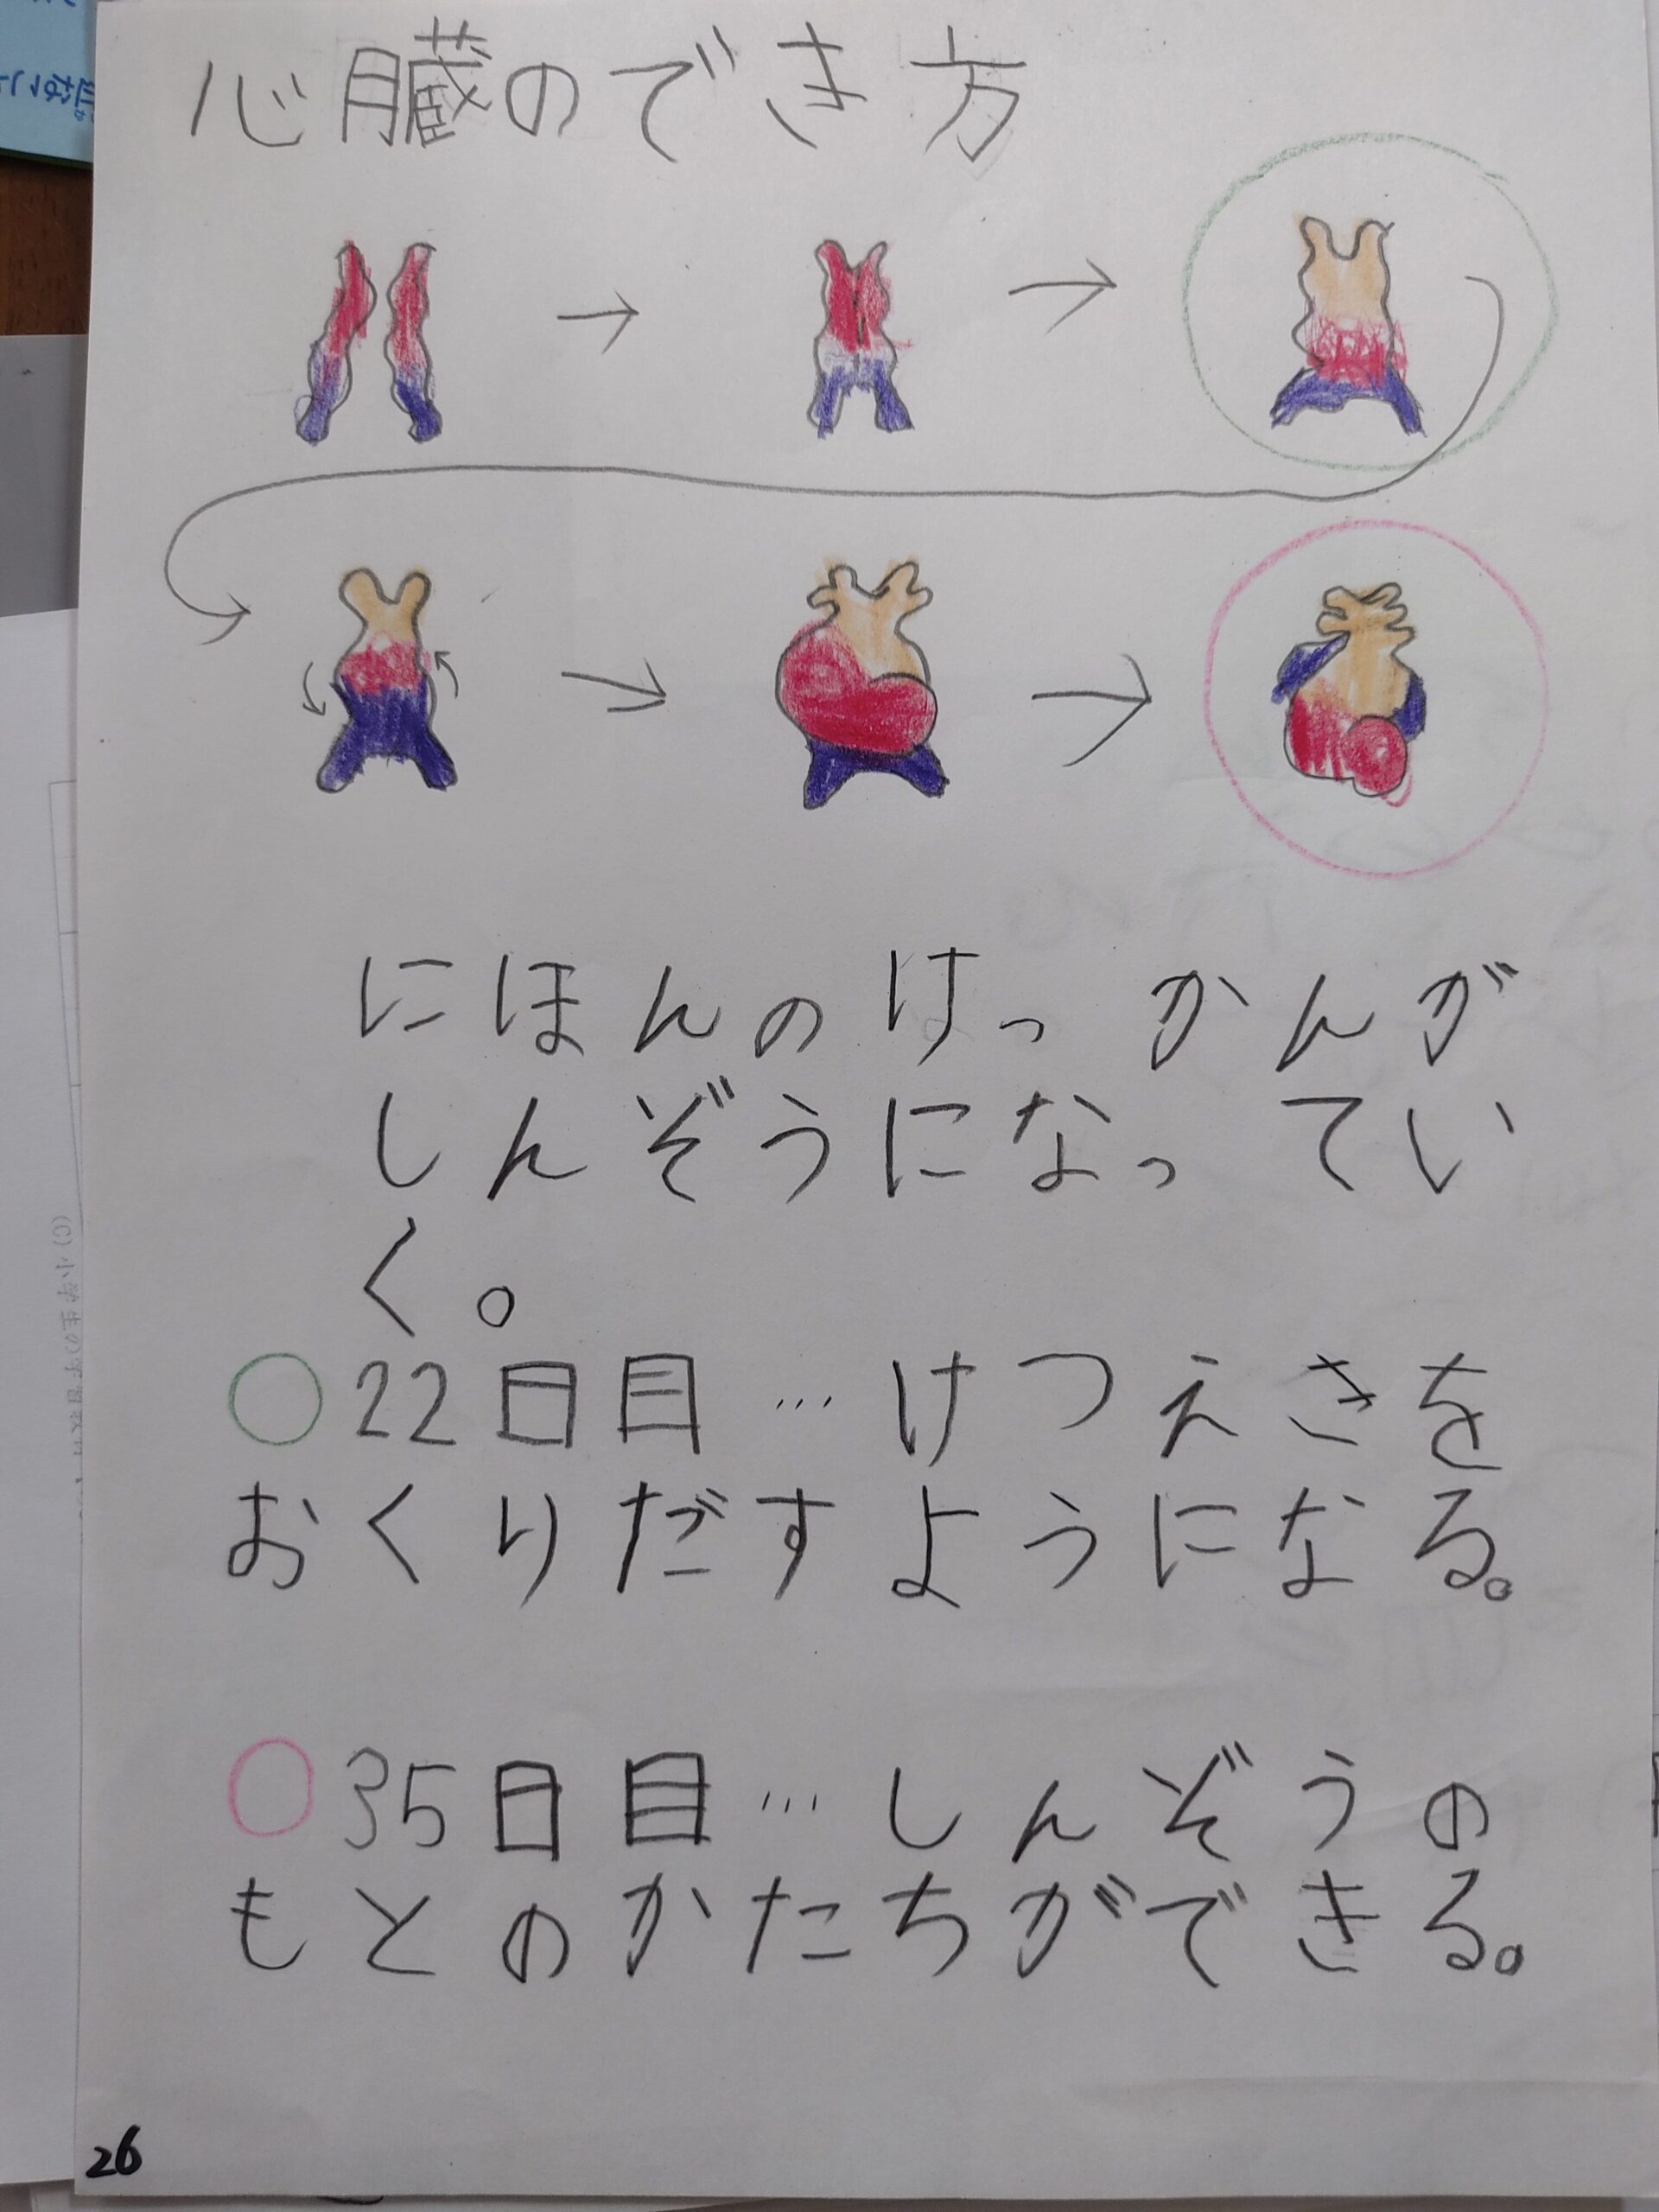 心臓のでき方
にほんのけっかんが
しんぞうになってい
く。
○22日目…けつえきを
おくりだすようになる。
○35日目…しんぞうの
もとのかたちができる。
26